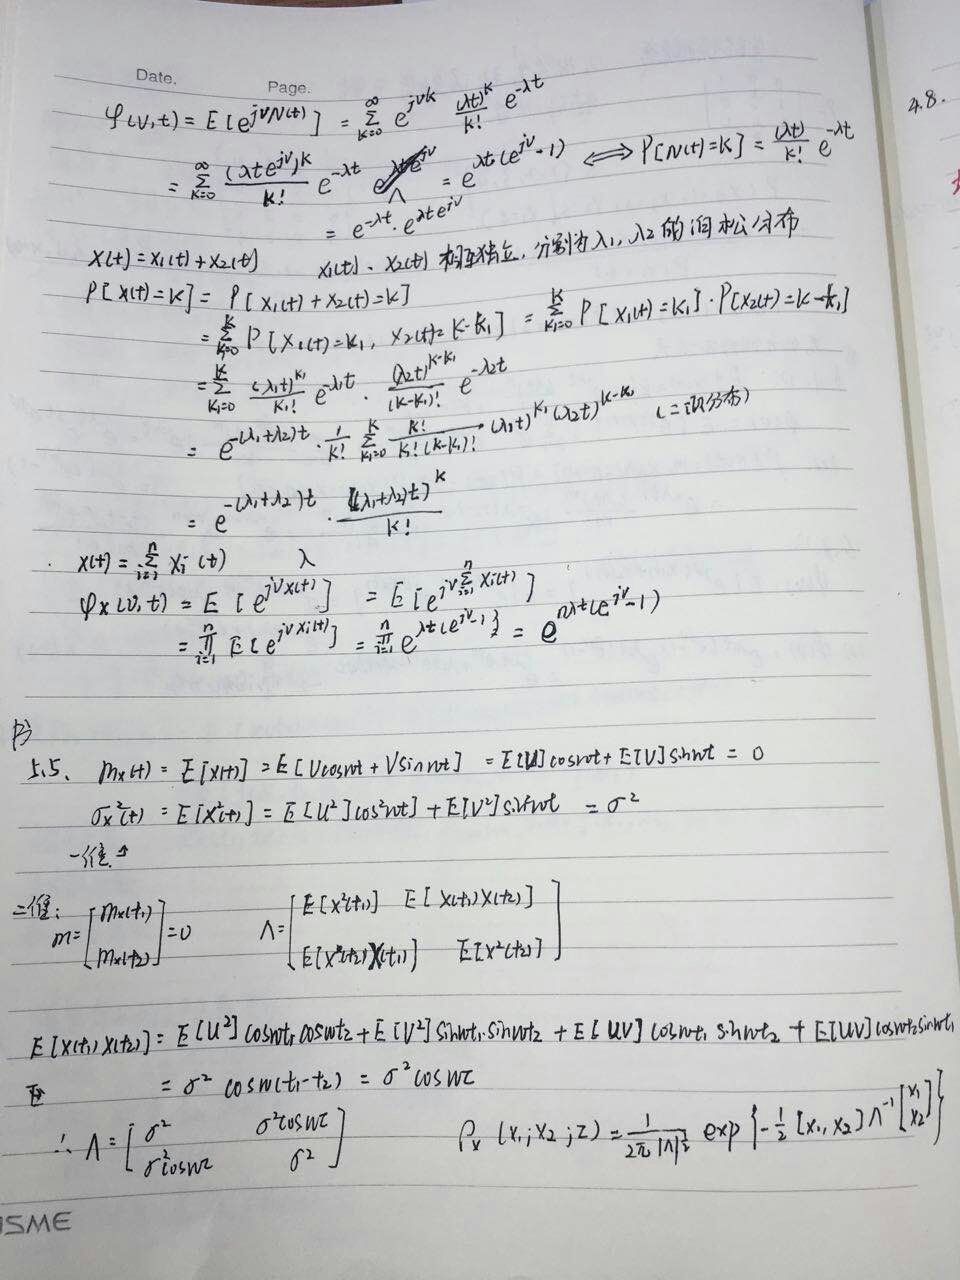 Date. Page.
4.8.
φ(v,t) = E[e^{jvN(t)}] = Σ_{k=0}^{∞} e^{jvk} (λt)^k/k! e^{-λt}
= Σ_{k=0}^{∞} (λte^{jv})^k/k! e^{-λt} = e^{λt(e^{jv}-1)} ⟺ P[N(t)=k] = (λt)/k! e^{-λt}
= e^{-λt}·e^{λte^{jv}}
X(t)=X1(t)+X2(t) X1(t)、X2(t) 相互独立,分别为λ1,λ2的泊松分布
P[X(t)=k] = P[X1(t)+X2(t)=k]
= Σ_{k1=0}^{k} P[X1(t)=k1, X2(t)=k-k1] = Σ_{k1=0}^{k} P[X1(t)=k1]·P[X2(t)=k-k1]
= Σ_{k1=0}^{k} (λ1t)^{k1}/k1! e^{-λ1t} · (λ2t)^{k-k1}/(k-k1)! e^{-λ2t}
= e^{-(λ1+λ2)t} · 1/k! Σ_{k1=0}^{k} k!/k1!(k-k1)! · (λ1t)^{k1}(λ2t)^{k-k1} (二项分布)
= e^{-(λ1+λ2)t} · ((λ1+λ2)t)^k/k!
X(t) = Σ_{i=1}^{n} Xi(t) λ
φx(v,t) = E[e^{jvX(t)}] = E[e^{jvΣ_{i=1}^{n}Xi(t)}]
= Π_{i=1}^{n} E[e^{jvXi(t)}] = Π_{i=1}^{n} e^{λt(e^{jv}-1)} = e^{nλt(e^{jv}-1)}
5.5. mx(t) = E[X(t)] = E[Ucoswt + Vsinwt] = E[U]coswt + E[V]sinwt = 0
σx²(t) = E[X²(t)] = E[U²]cos²wt] + E[V²]sin²wt = σ²
一维↑
二维:
m=[mx(t1) mx(t2)]=0 Λ=[E[X²(t1)] E[X(t1)X(t2)]
E[X(t2)X(t1)] E[X²(t2)]]
E[X(t1)X(t2)] = E[U²]coswt1coswt2 + E[V²]sinwt1·sinwt2 + E[UV]coswt1 sinwt2 + E[UV]coswt2sinwt1
= σ²cosw(t1-t2) = σ²coswτ
∴ Λ=[σ² σ²coswτ
σ²coswτ σ²] Px(x1,x2;τ) = 1/2π|Λ|^{1/2} exp{-1/2[x1,x2]Λ^{-1}[x1 x2]}
ISME